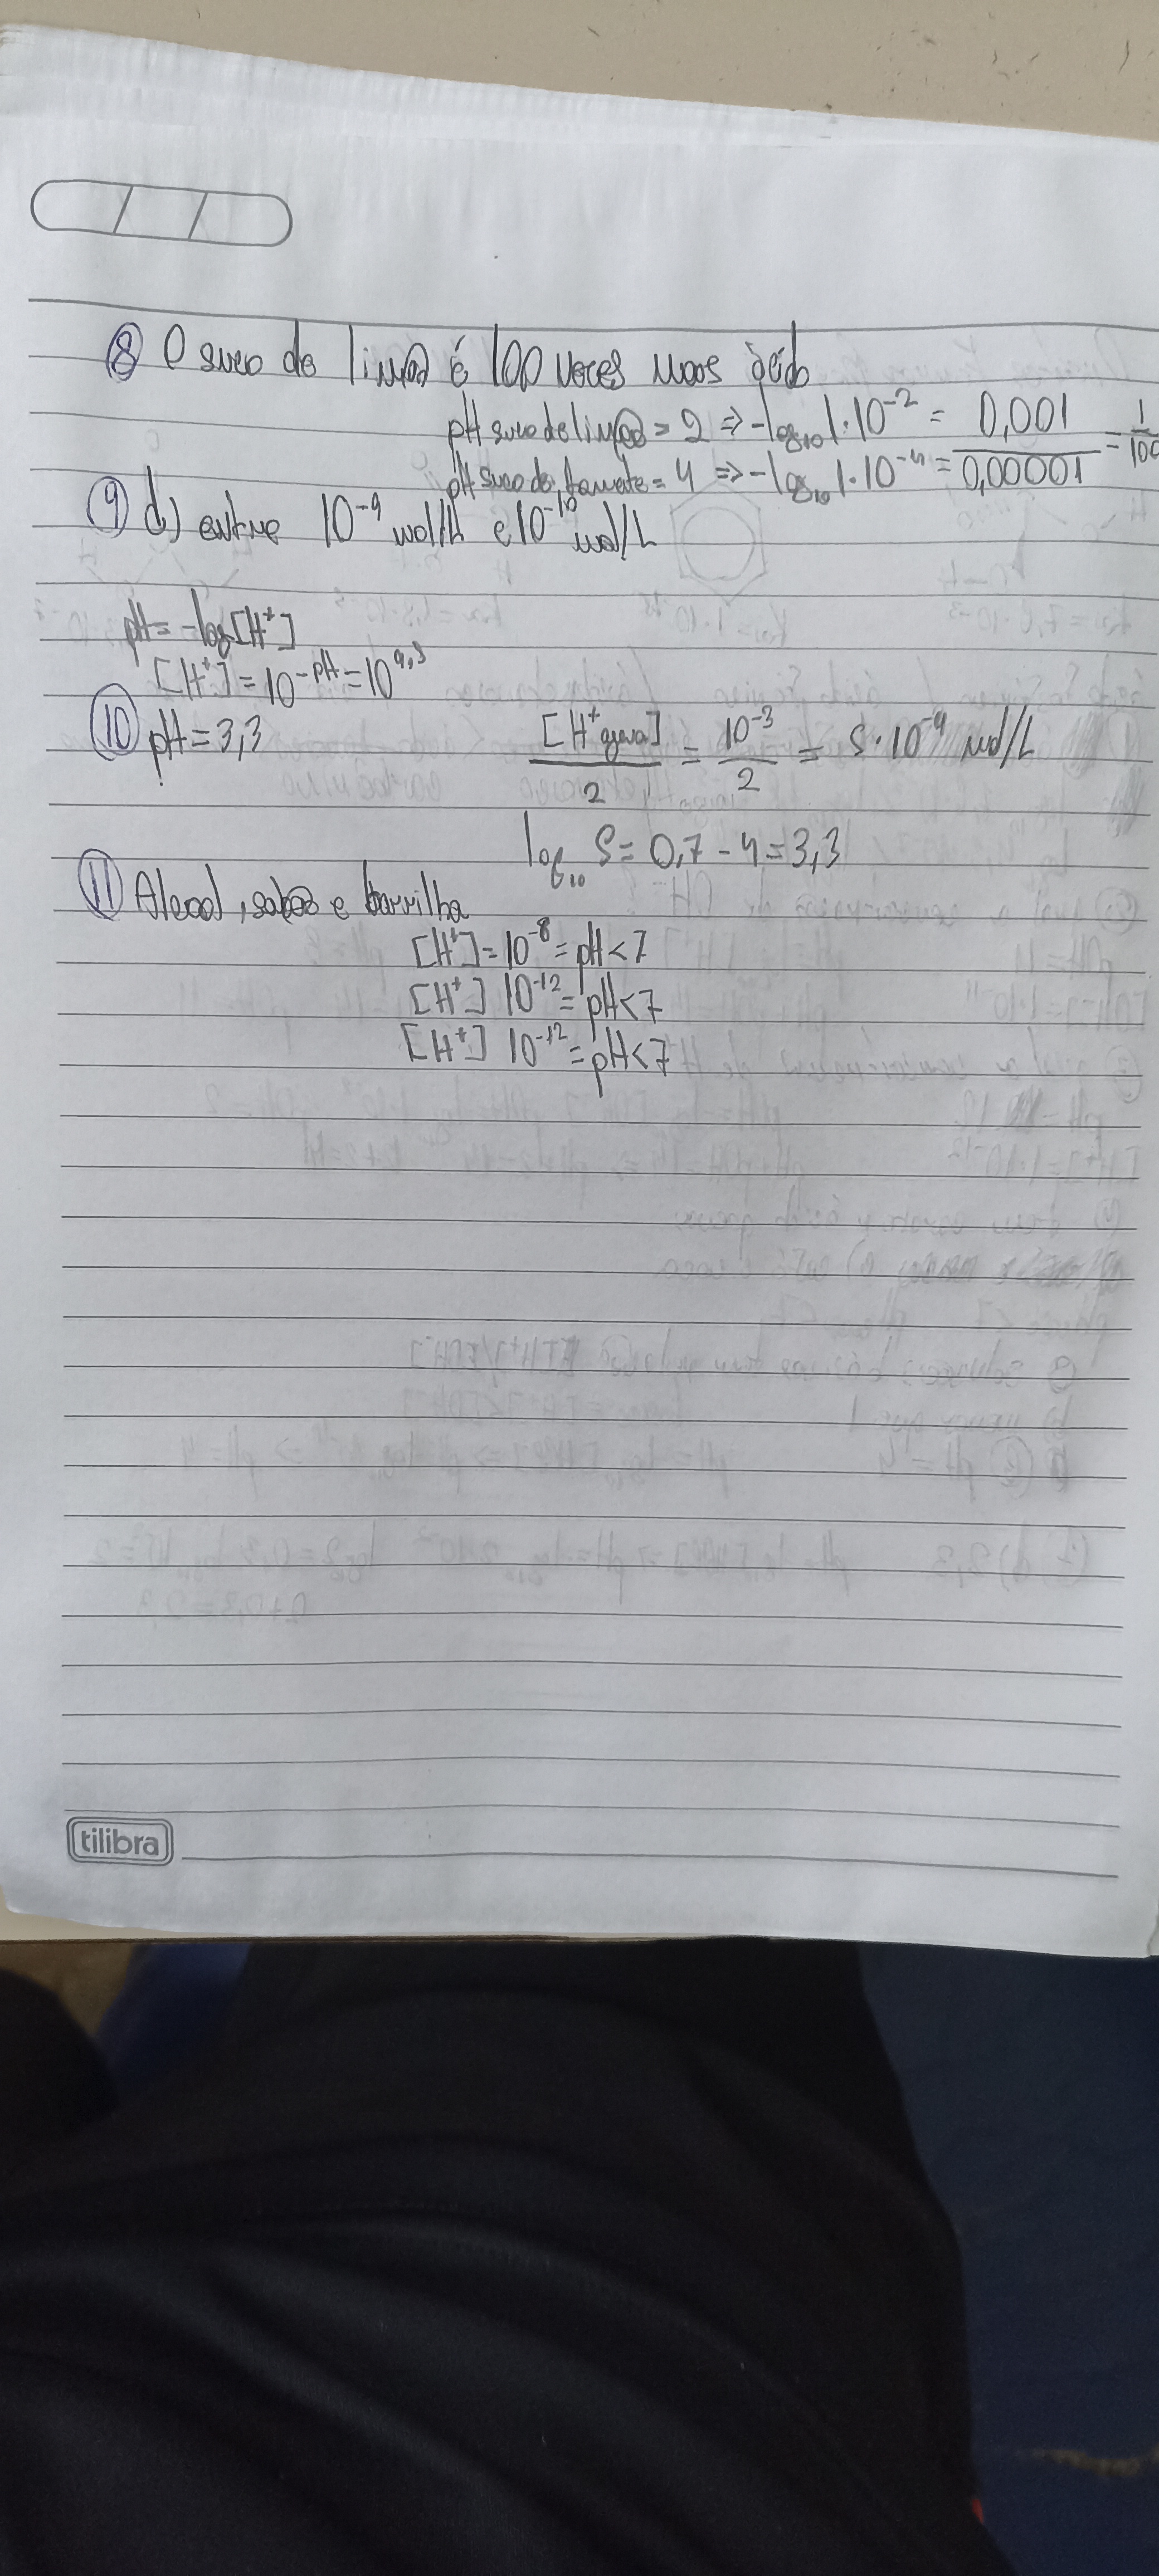 ⑧ O suco do limão é 100 vezes mais ácido
pH suco de limão = 2 ⇒ -log₁₀ 1·10⁻² = 0,001 = 1/100
pH suco do tomate = 4 ⇒ -log₁₀ 1·10⁻⁴ = 0,00001
⑨ d) entre 10⁻⁹ mol/L e 10⁻¹⁰ mol/L
pH = -log[H⁺]
[H⁺] = 10⁻ᵖᴴ = 10⁹,⁵
⑩ pH = 3,3 [H⁺ gerou]/2 = 10⁻³/2 = 5·10⁻⁴ mol/L
log₁₀ 5 = 0,7 - 4 = 3,3
⑪ Alcool, sabão e barrilha
[H⁺] = 10⁻⁸ = pH < 7
[H⁺] 10⁻¹² = pH < 7
[H⁺] 10⁻¹² = pH < 7
tilibra